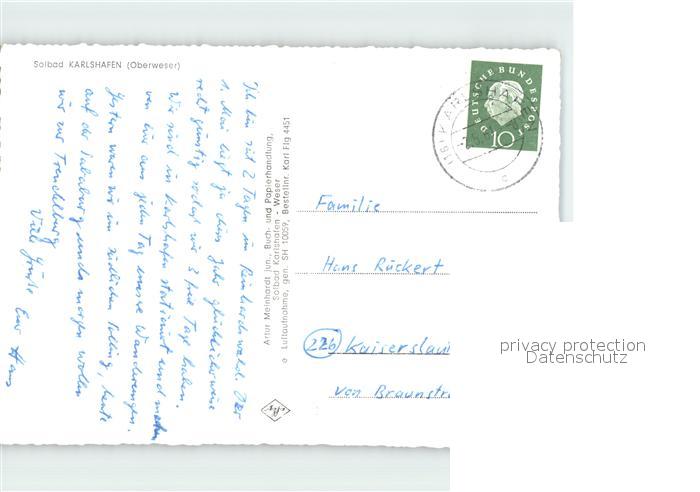 Solbad KARLSHAFEN (Oberweser)
Ich bin seit 2 Tagen im Reinhardswald. Der
1. Mai liegt ja dies Jahr glücklicherweise
recht günstig, sodass wir 3 freie Tage haben.
Wir sind in Karlshafen stationiert und machen
von hier aus jeden Tag unsere Wanderungen.
Gestern waren wir im südlichen Solling, heute
auf der Sababurg und morgen wollen
wir zur Trendelburg
Viele Grüße Euer Hans
Artur Meinhardt jun., Buch- und Papierhandlung,
Solbad Karlshafen - Weser
© Luftaufnahme, gen. SH 10059, Bestellnr. Karl Flg 4451
DEUTSCHE BUNDESPOST
10
(16) KARLSHAFEN
c
Familie
Hans Rückert
(22b) Kaiserslau
von Braunstr
privacy protection
Datenschutz